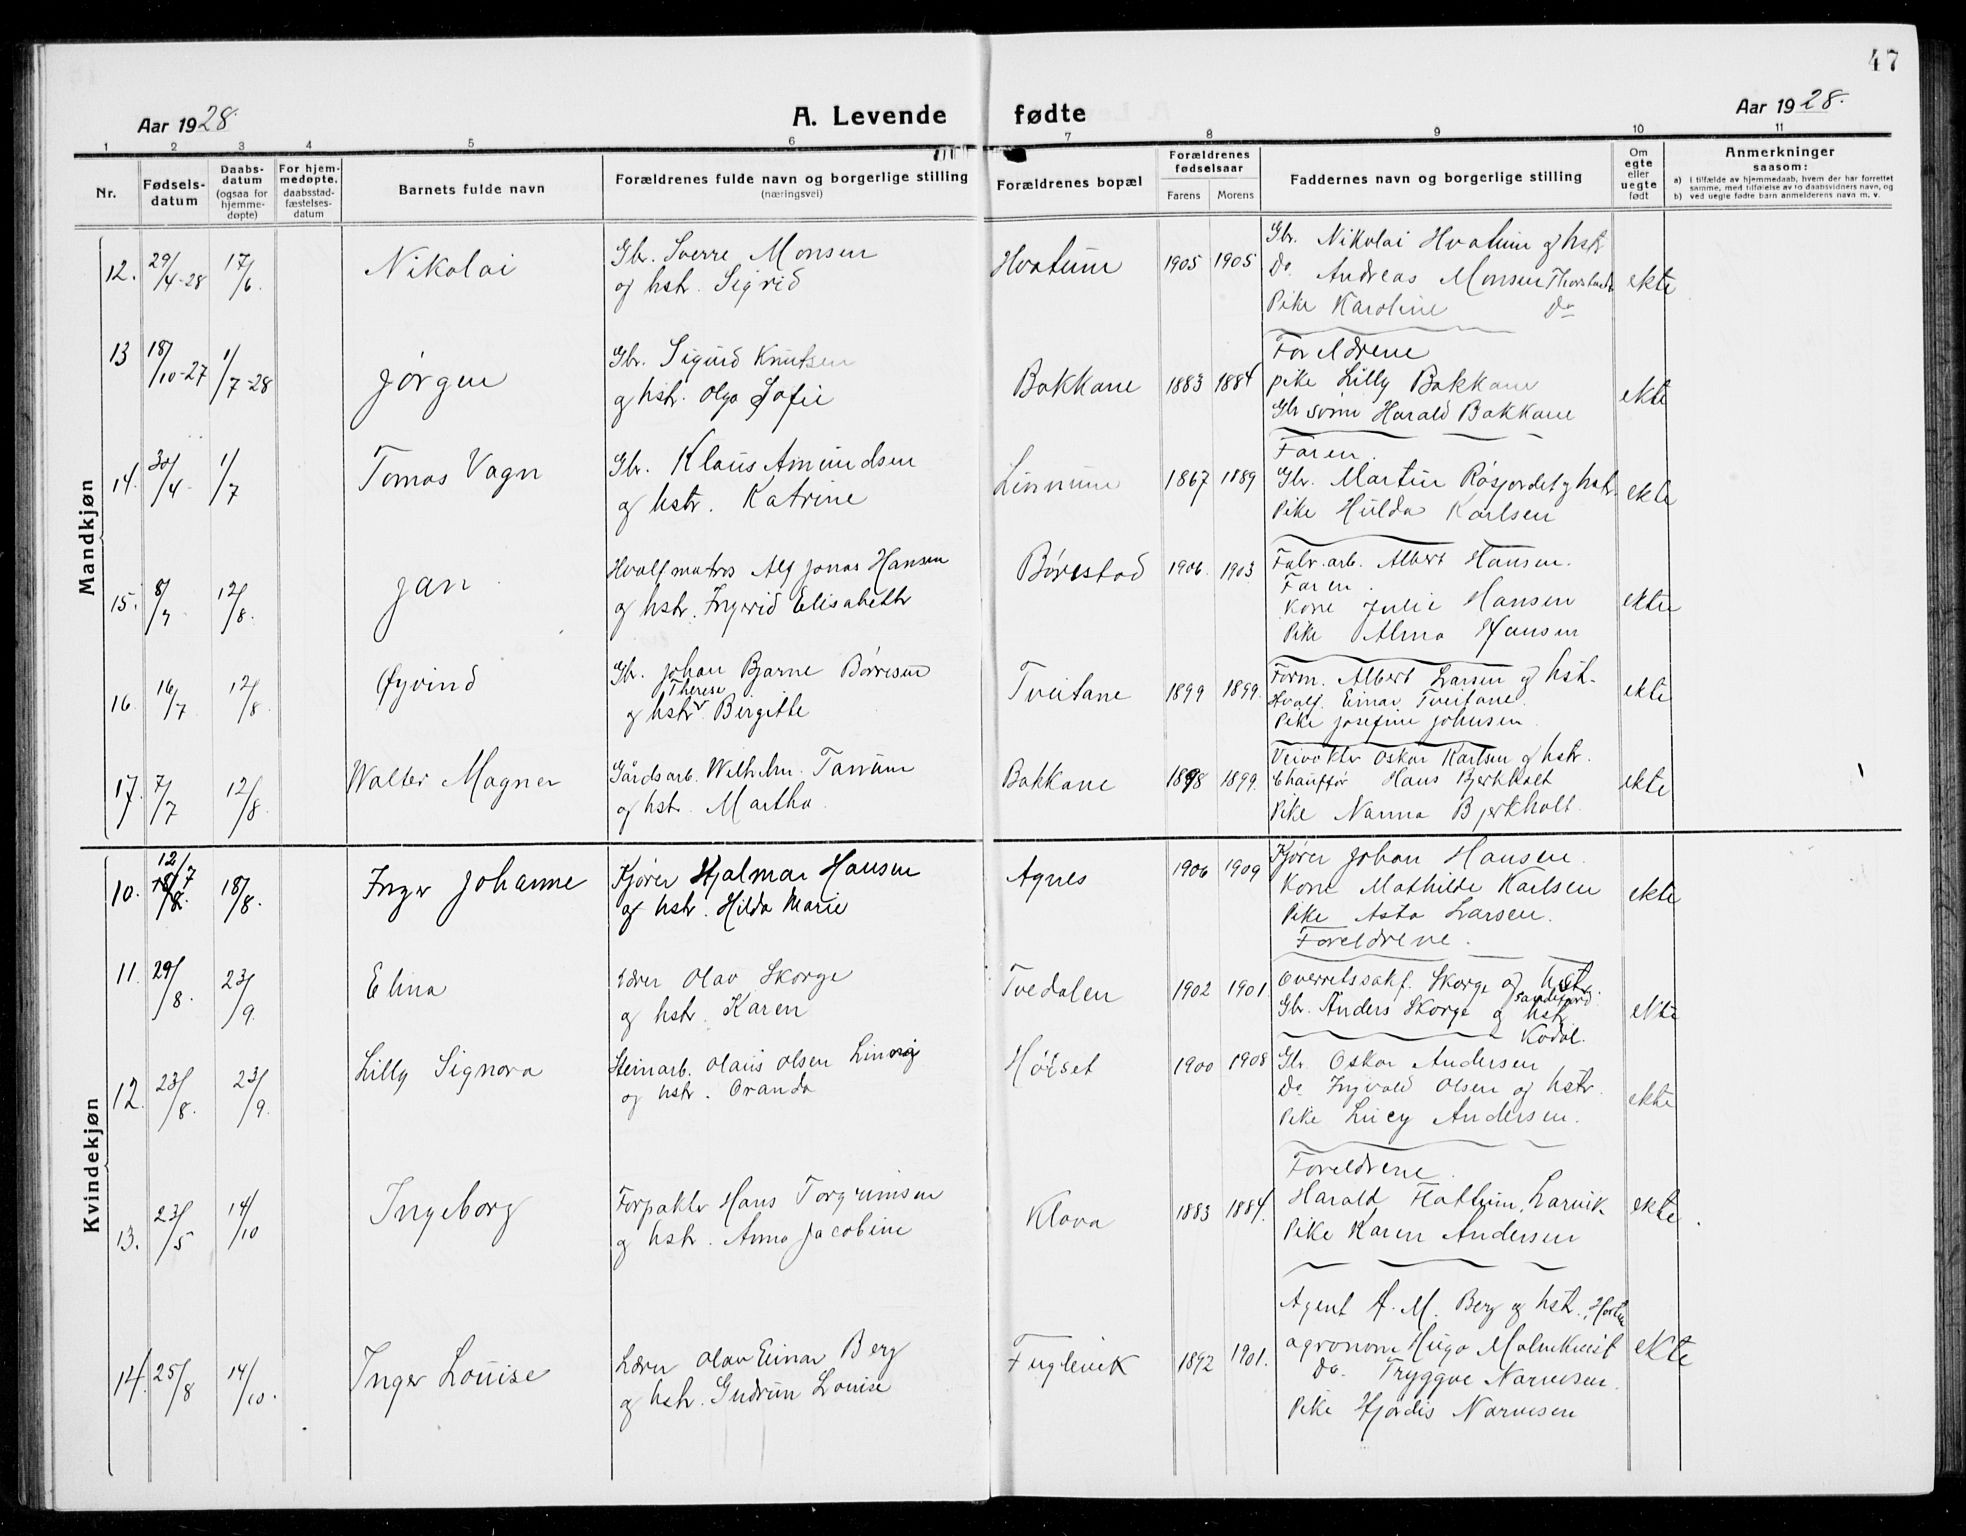 47
Aar 1928.
A. Levende fødte
Aar 1928.
1 2 3 4 5 6 7 8 9 10 11
Nr.
Fødselsdatum
Daabsdatum (ogsaa for hjemmedøpte)
For hjemmedøpte, daabsstadfæstelsesdatum
Barnets fulde navn
Forældrenes fulde navn og borgerlige stilling (næringsvei)
Forældrenes bopæl
Forældrenes fødselsaar
Farens Morens
Faddernes navn og borgerlige stilling
Om egte eller uegte født
Anmerkninger saasom:
a) i tilfælde av hjemmedaab, hvem der har forrettet samme, med tilføielse av to daabsvidners navn, og
b) ved uegte fødte barn anmelderens navn m. v.
Mandkjøn
12. 29/4-28 17/6. Nikolai
Gbr. Sverre Monsen
og hstr. Sigrid
Hvatum 1905 1905
Gbr. Nikolai Hvatum og hstr
Do. Andreas Monsen
Pike Karoline Do
ekte
13 18/10-27 1/7-28 Jørgen
Gbr. Sigurd Knutsen
og hstr. Olga Sofie
Bakkane 1883 1884
Foreldrene
pike Lilly Bakkane
Gbr sønn Harald Bakkane
ekte
14. 30/4. 1/7 Tomas Vagn
Gbr. Klaus Amundsen
og hstr. Katrine
Linnum 1867 1889
Faren.
Gbr. Martin Røsjordet og hstr.
Pike Hulda Karlsen
ekte
15. 8/7. 12/8. Jan
Hvalfmatros Alf Jonas Hansen
og hstr. Ingerid Elisabeth
Børrestad 1906. 1903.
Fabr. arb. Albert Hansen.
Faren.
Kone Julie Hansen
Pike Alma Hansen
ekte
16. 16/7. 12/8. Øyvind
Gbr. Johan Bjarne Børresen
og hstr. Therese Bergitte
Tveitane 1899 1899.
Form. Albert Larsen og hst.
Hvalf. Einar Tveitane.
Pike Josefine Johnsen.
ekte
17. 7/7 12/8. Walter Magner
Gårdsarb. Wilhelm. Tanum
og hstr. Martha.
Bakkane 1898 1899.
Veivokter Oskar Karlsen og hstr.
Chauffør Hans Bjerkholt
Pike Nanna Bjerkholt.
ekte
Kvindekjøn
10. 12/7 18/8. Inger Johanne
Kjører Hjalmar Hansen
og hstr. Hilda Marie
Agnes 1906 1909
Kjører Johan Hansen.
Kone Mathilde Karlsen
Pike Asta Larsen.
Foreldrene.
ekte
11. 29/8. 23/9. Elina
Lærer Olav Skorge
og hstr. Karen
Tvedalen 1902 1901
Overretssakf. Skorge og hstr. Sandefjord.
Gbr. Anders Skorge og hstr
Kodal.
ekte
12. 23/8. 23/9. Lilly Signora
Steinarb. Olaus Olsen
og hstr. Oranda
Hølset 1900 1908
Gbr. Oskar Andersen
Do. Ingvald Olsen og hstr.
Pike Lucy Andersen.
ekte
13. 23/5 14/10 Ingeborg
Forpakter Hans Torgrimsen
og hstr. Anna Jacobine
Klova 1883 1884.
Foreldrene.
Harald Hattum, Larvik
Pike Karen Andersen
ekte.
14. 25/8 14/10. Inger Louise
Lærer Olav Einar Berg
og hstr. Gudrun Louise
Fuglevik 1892 1901.
Agent A. M. Berg og hstr., Horten
agronom Hugo Malmkvist
Do. Tryggve Narvesen.
Pike Hjørdis Narvesen
ekte